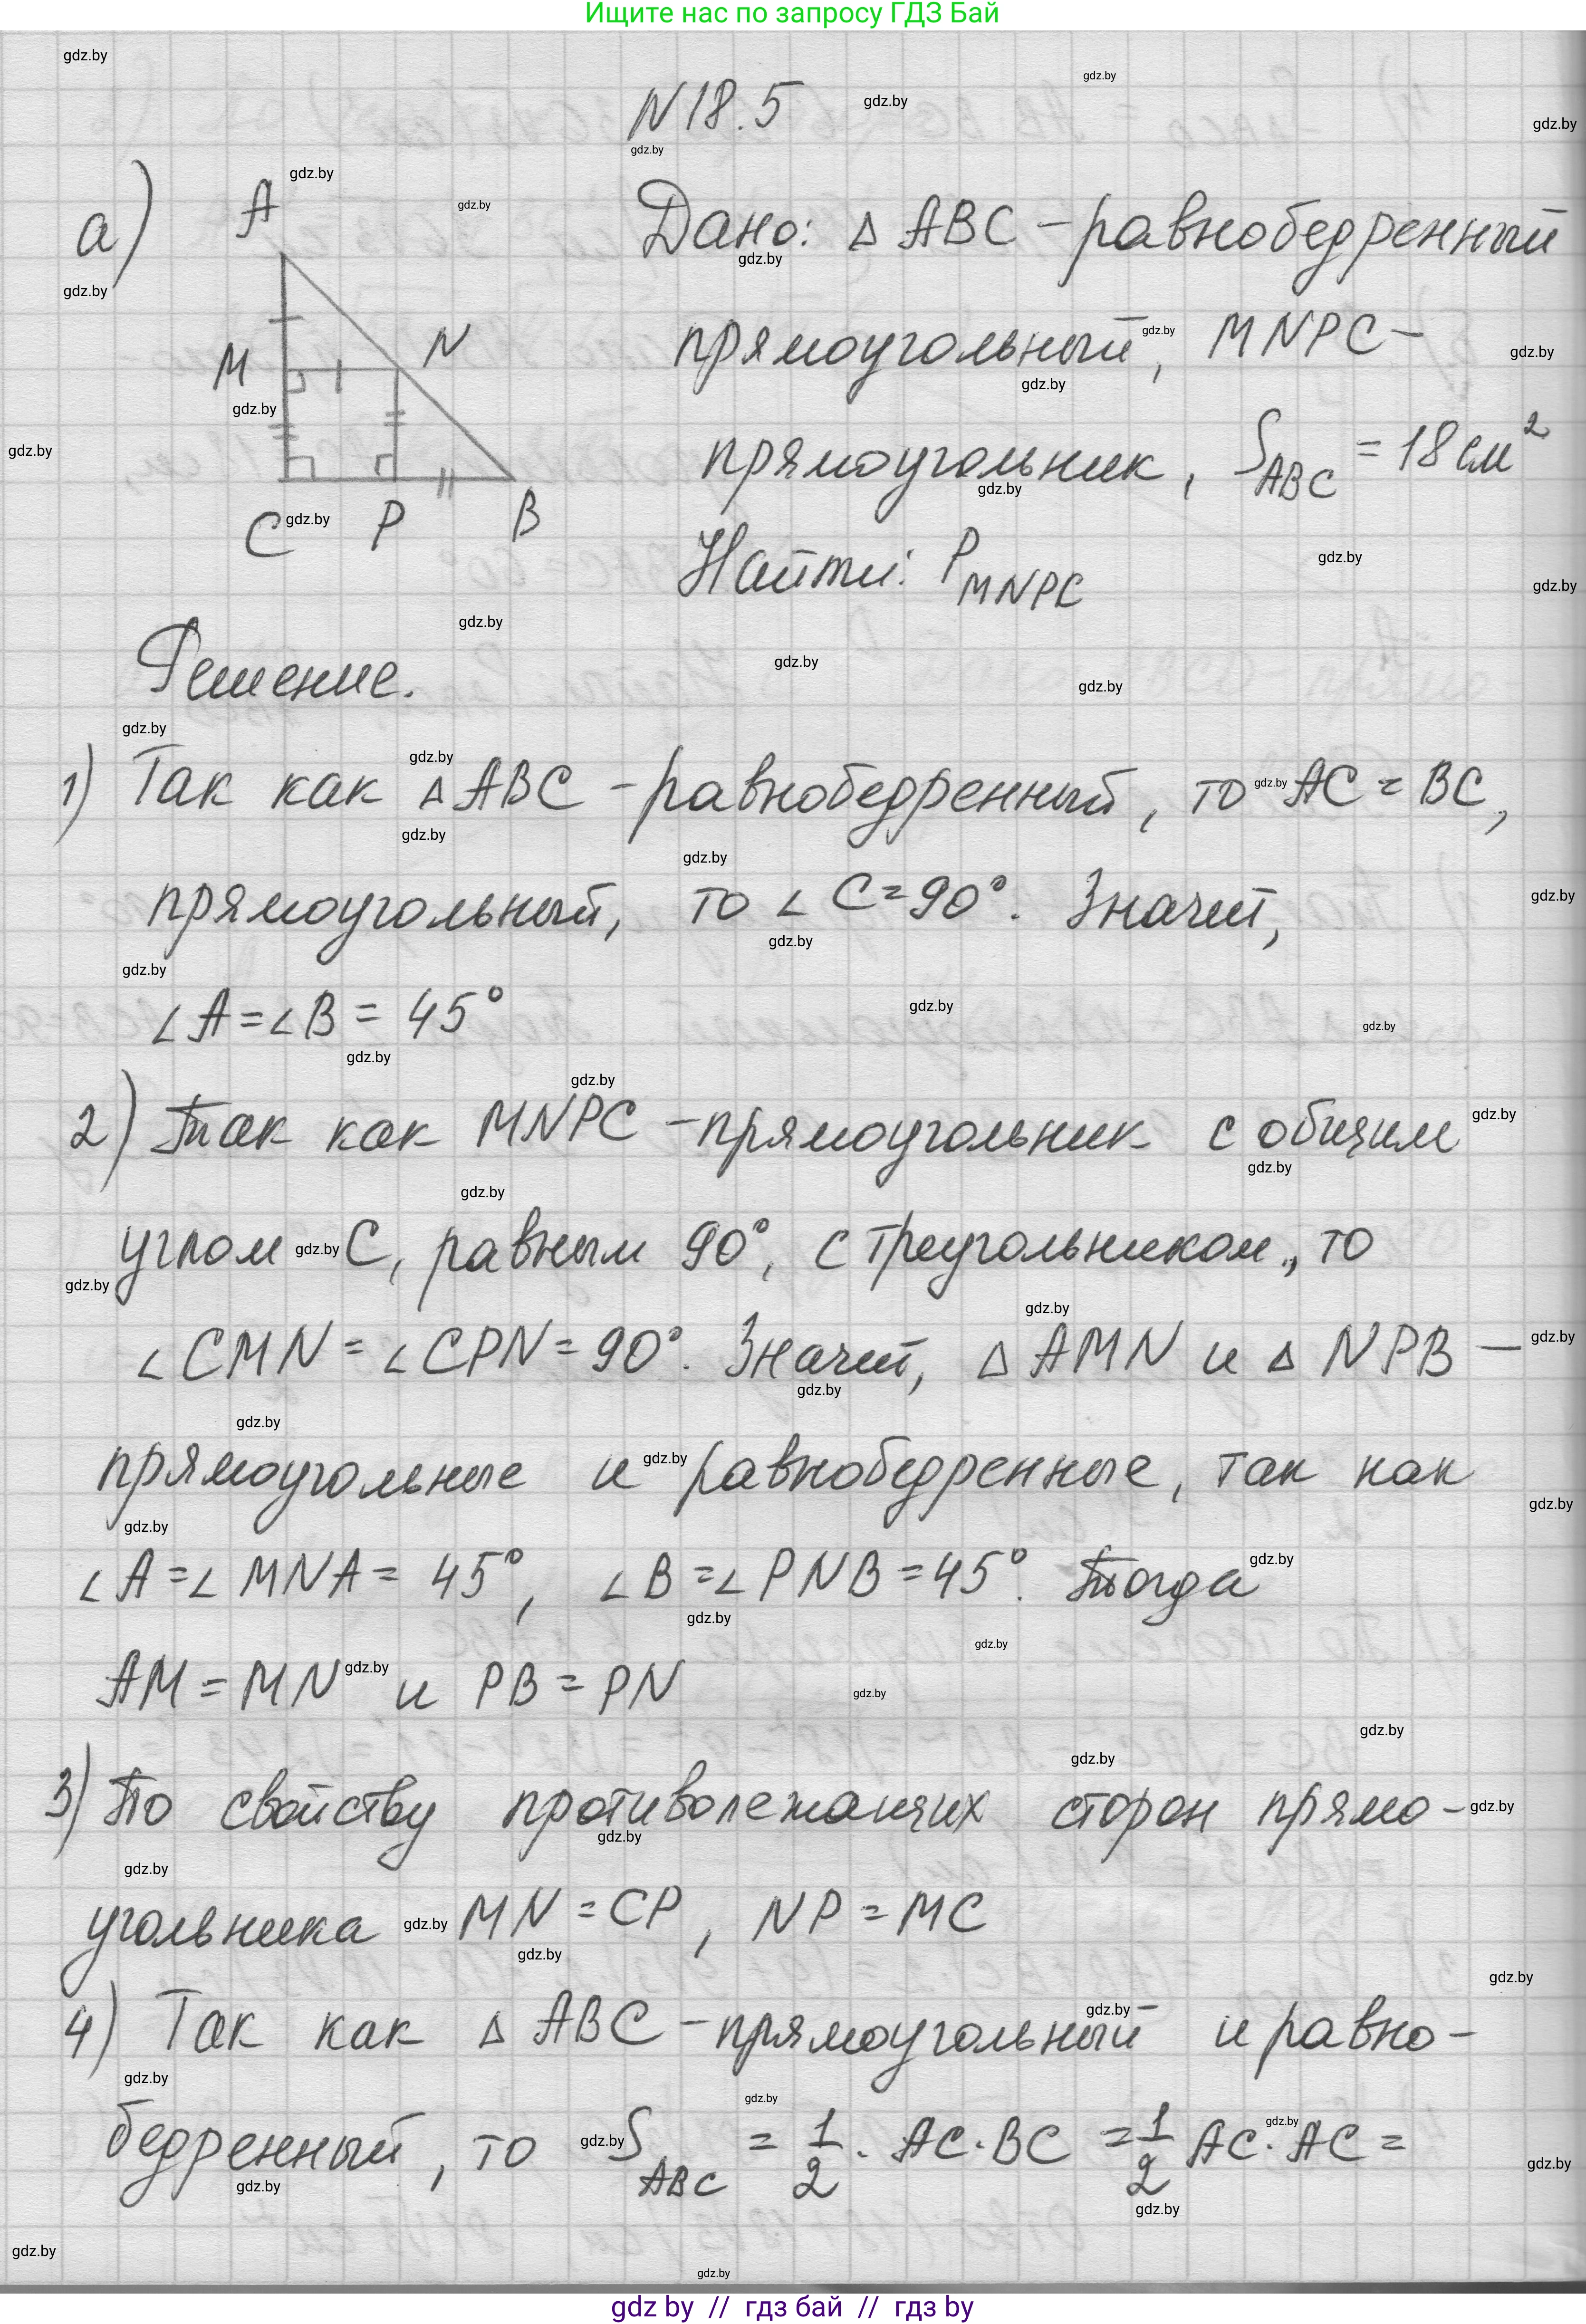 Ищите нас по запросу ГДЗ Бай
N18.5
а)
A
M
N
C
P
B
Дано: Δ ABC - равнобедренный
прямоугольный, MNPC -
прямоугольник, S_ABC = 18 см²
Найти: P_MNPC
Решение.
1) Так как Δ ABC - равнобедренный, то AC = BC,
прямоугольный, то ∠ C = 90°. Значит,
∠ A = ∠ B = 45°
2) Так как MNPC - прямоугольник с общим
углом C, равным 90°, с треугольником, то
∠ CMN = ∠ CPN = 90°. Значит, Δ AMN и Δ NPB -
прямоугольные и равнобедренные, так как
∠ A = ∠ MNA = 45°, ∠ B = ∠ PNB = 45°. Тогда
AM = MN и PB = PN
3) По свойству противолежащих сторон прямо-
угольника MN = CP, NP = MC
4) Так как Δ ABC - прямоугольный и равно-
бедренный, то S_ABC = 1/2 · AC · BC = 1/2 AC · AC =
gdz by // гдз бай // гдз by